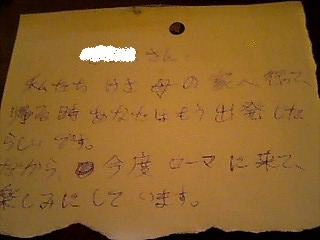 さん、
私たち けさ 母 の 家へ 行って、
帰る時 あなたは もう 出発した
らしい です。
だから、 今度 ローマ に 来て、
楽しみに して います。